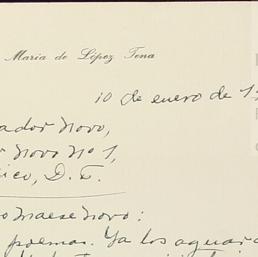 Maria de López Tena
10 de enero de 1
ador Novo,
Novo Nº 1,
ico, D. F.
o maese Novo:
poemas. Ya los